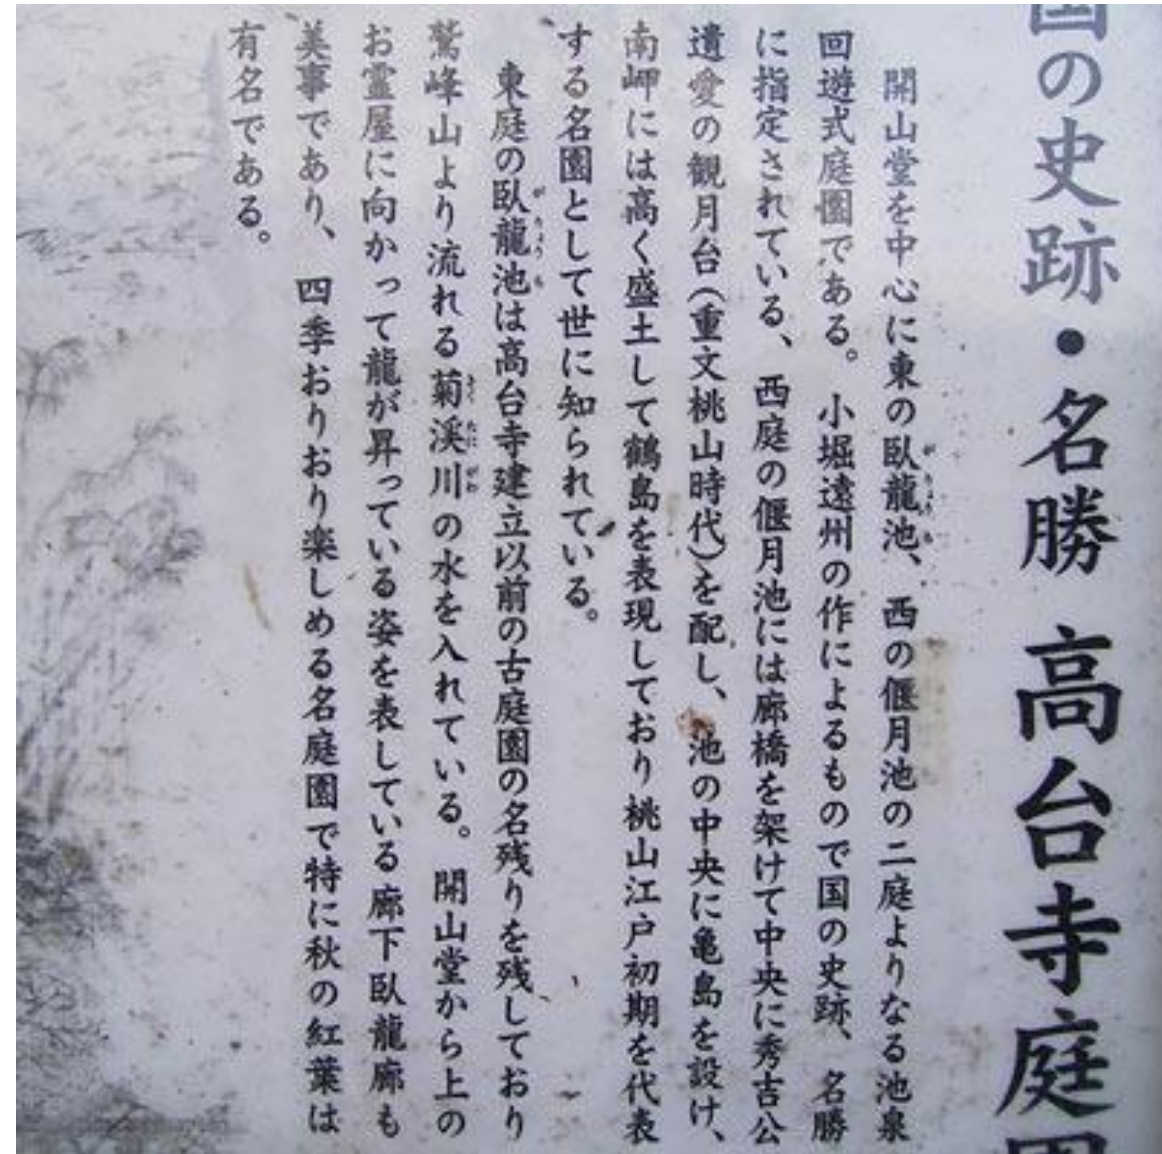 国の史跡・名勝 高台寺庭園
開山堂を中心に東の臥龍池、西の偃月池の二庭よりなる池泉
回遊式庭園である。小堀遠州の作によるもので国の史跡、名勝
に指定されている、西庭の偃月池には廊橋を架けて中央に秀吉公
遺愛の観月台(重文桃山時代)を配し、池の中央に亀島を設け、
南岬には高く盛土して鶴島を表現しており桃山江戸初期を代表
する名園として世に知られている。
東庭の臥龍池は高台寺建立以前の古庭園の名残りを残しており
鷲峰山より流れる菊溪川の水を入れている。開山堂から上の
お霊屋に向かって龍が昇っている姿を表している廊下臥龍廊も
美事であり、四季おりおり楽しめる名庭園で特に秋の紅葉は
有名である。